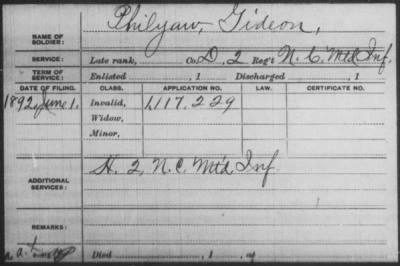 Philyaw, Gideon,
NAME OF SOLDIER:
SERVICE: Late rank, Co. D, 2 Reg't N. C. Mtd Inf.
TERM OF SERVICE: Enlisted , 1 Discharged , 1
DATE OF FILING. CLASS. APPLICATION NO. LAW. CERTIFICATE NO.
1892 June 1. Invalid, 1,117,229
Widow,
Minor,
ADDITIONAL SERVICES: H. 2, N. C. Mt'd Inf
REMARKS:
Died , 1 , at